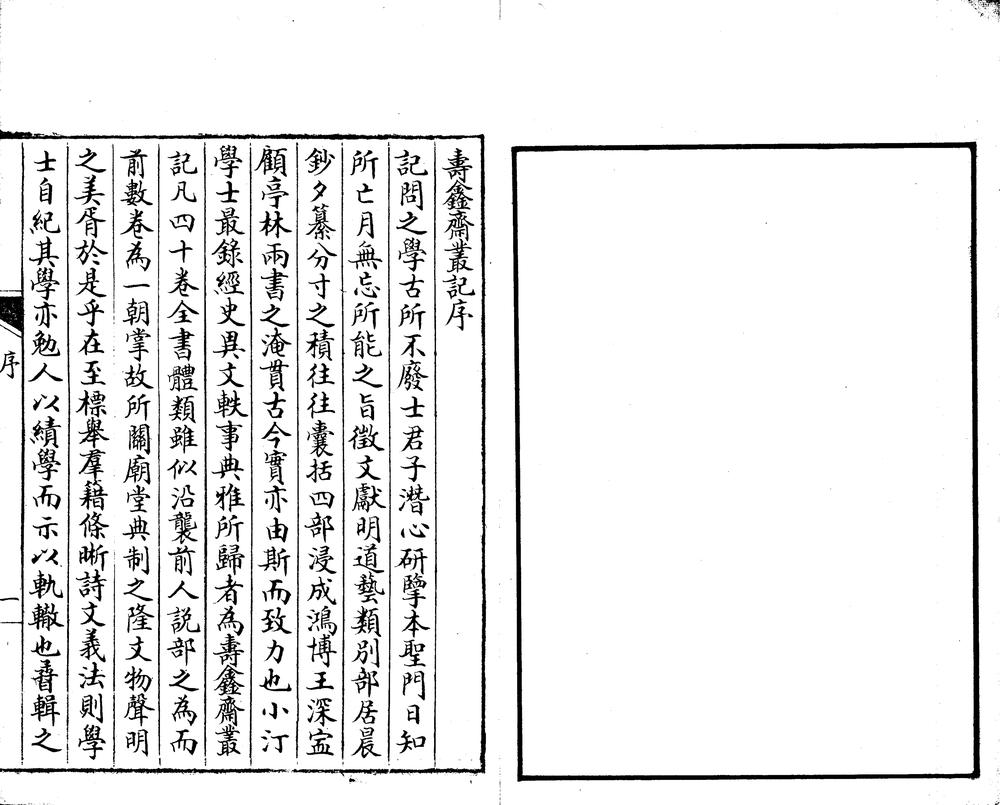 壽鑫齋叢記序
記問之學古所不廢士君子潛心研擥本聖門日知
所亡月無忘所能之旨徵文獻明道藝類別部居晨
鈔夕纂分寸之積往往囊括四部浸成鴻博王深寍
顧亭林兩書之淹貫古今實亦由斯而致力也小汀
學士最錄經史異文軼事典雅所歸者為壽鑫齋叢
記凡四十卷全書體類雖似沿襲前人說部之為而
前數卷為一朝掌故所關廟堂典制之隆文物聲明
之美胥於是乎在至標舉羣籍條晰詩文義法則學
士自紀其學亦勉人以績學而示以軌轍也輯之
序
一